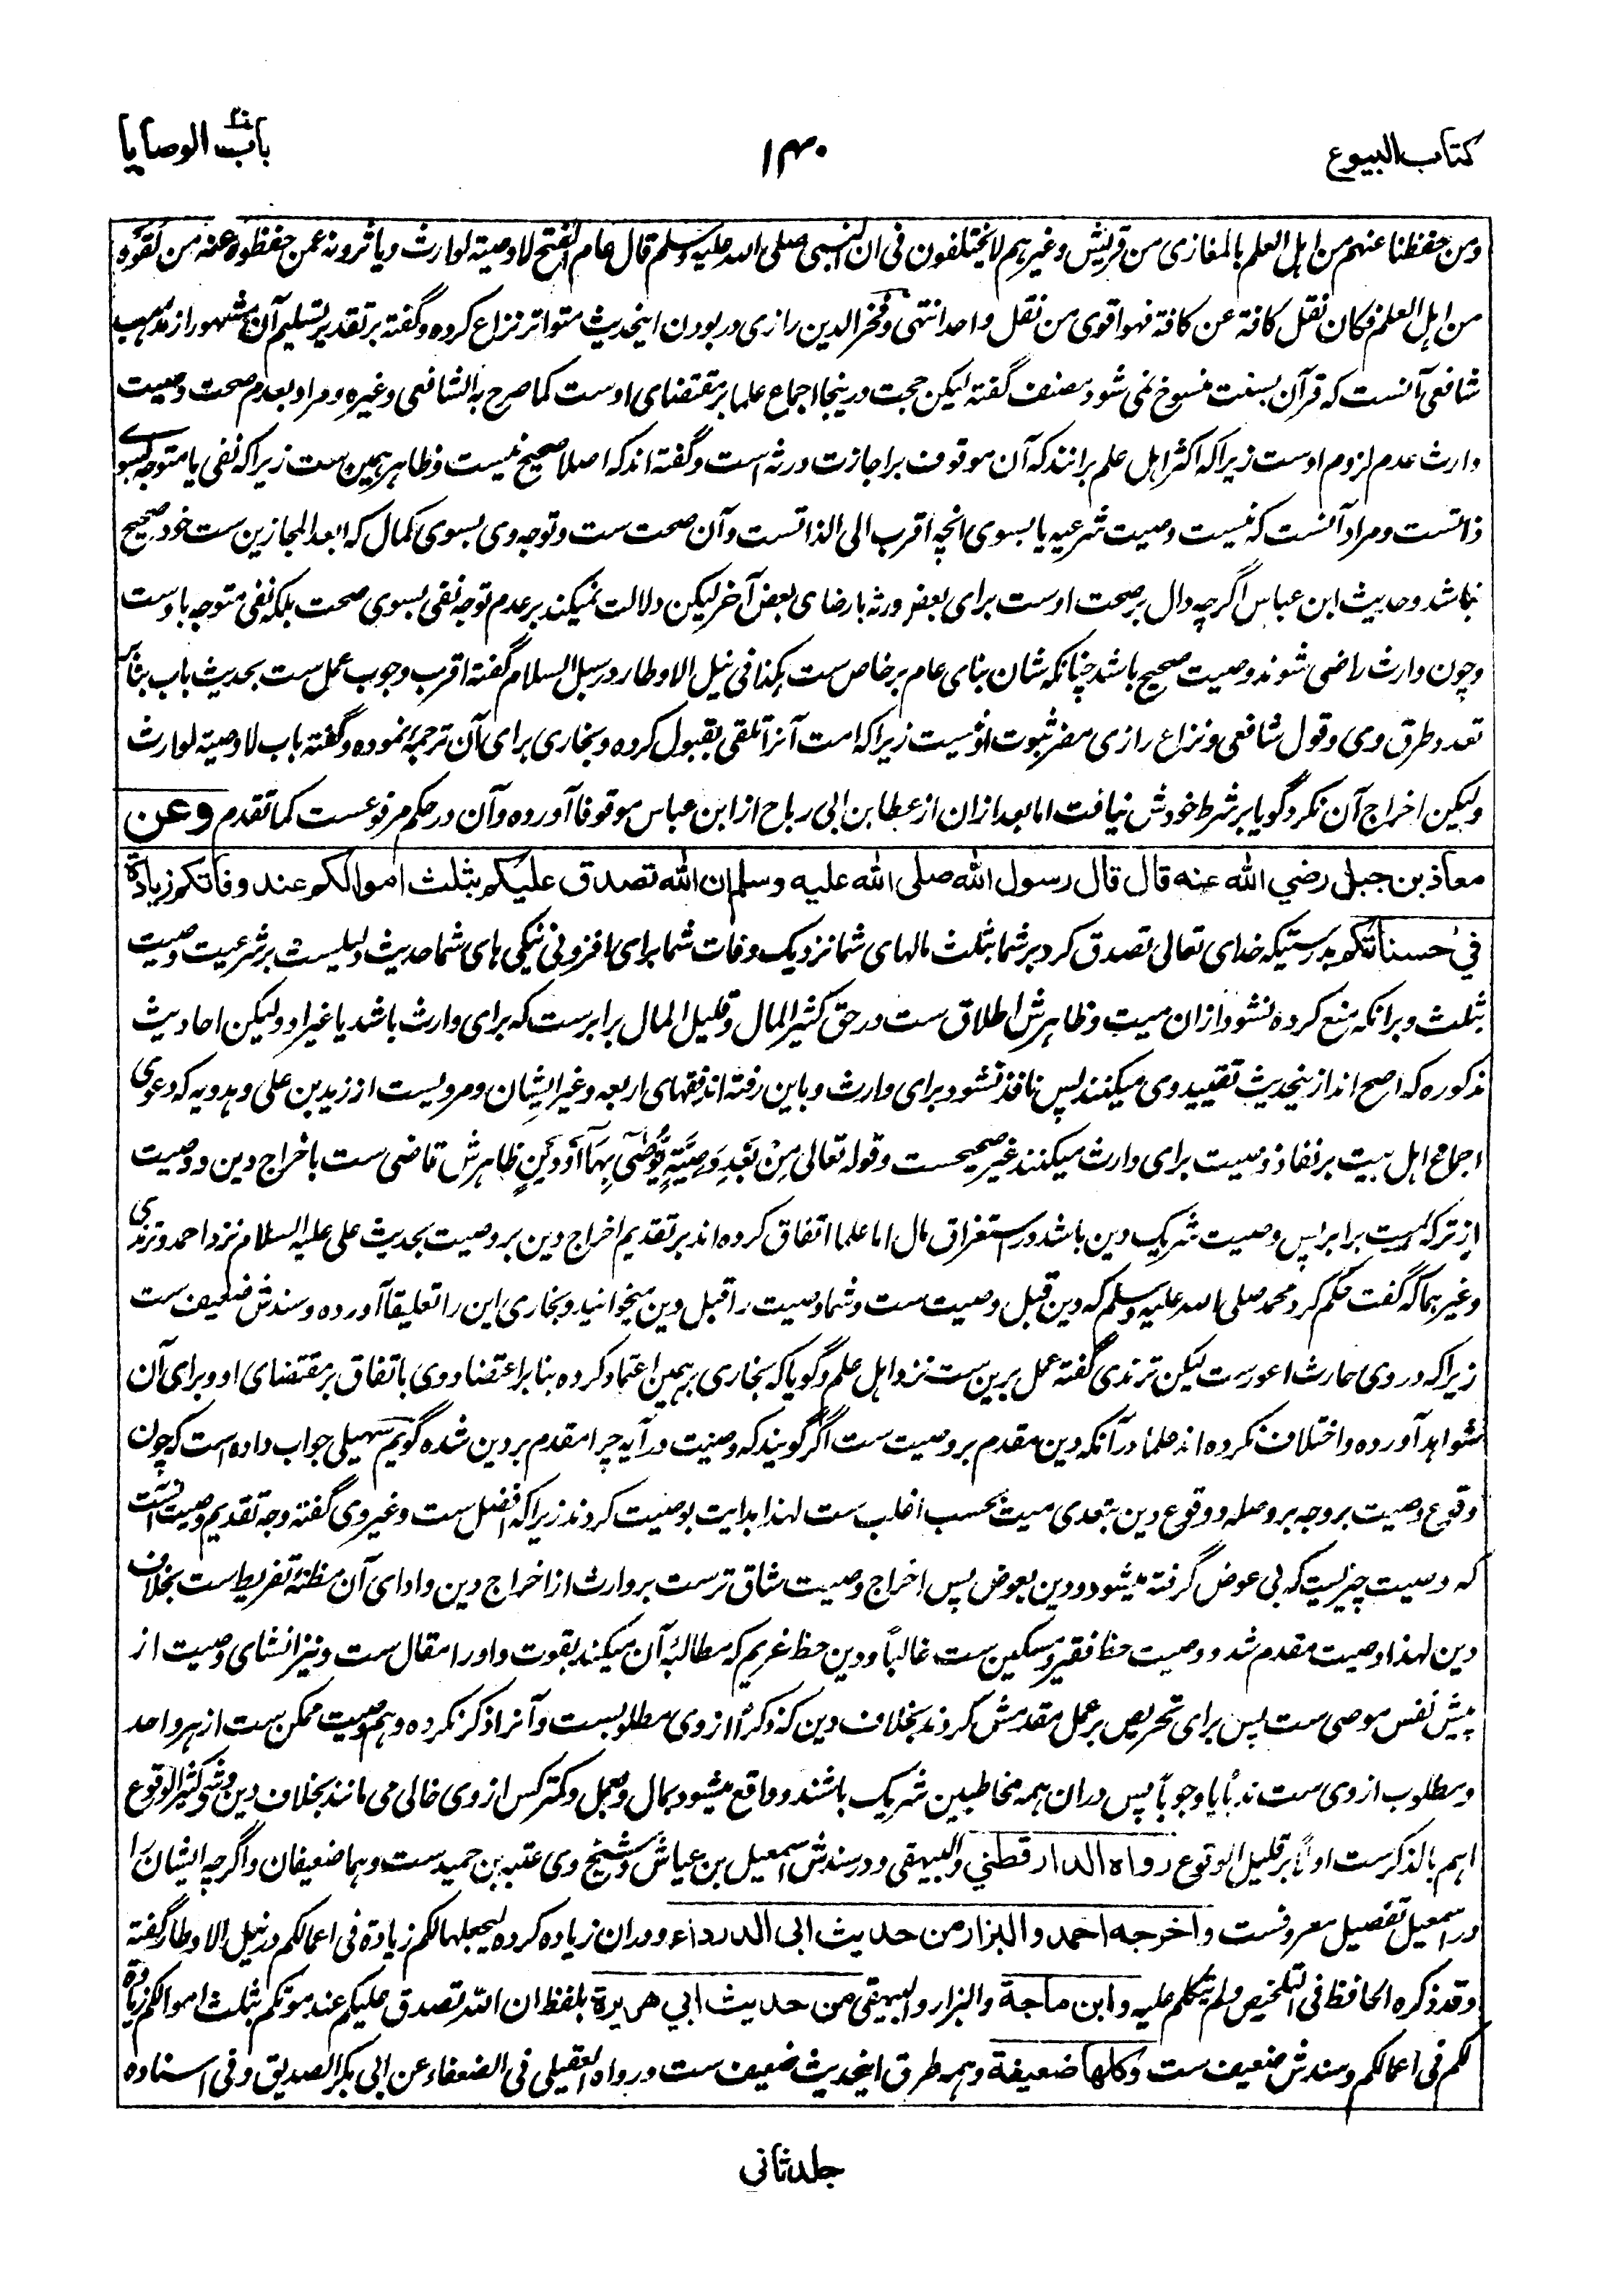 کتاب البیوع
۱۴۰
باب الوصایا
ومن حفظنا عنهم من اهل العلم بالمغازی من قریش وغیرهم لا یختلفون فی ان النبی صلی الله علیه وسلم قال عام الفتح لا وصیة لوارث ویأثرونه عمن حفظوه عنه من لقوه
من اهل العلم فکان نقل کافة عن کافة فهو اقوی من نقل واحد انتهی و فخر الدین رازی در بودن اینحدیث متواتر نزاع کرده و گفته بر تقدیر تسلیم آن مشهور از مذهب
شافعی آنست که قرآن بسنت منسوخ نمی شود مصنف گفته لیکن حجت درینجا اجماع علما بر مقتضای اوست کما صرح به الشافعی وغیره و مراد بعدم صحت وصیت
وارث عدم لزوم اوست زیرا که اکثر اهل علم برانند که آن موقوف بر اجازت ورثه است و گفته اند که اصلا صحیح نیست و ظاهر همین ست زیرا که نفی یا متوجه بسوی
ذاتست و مراد آنست که نیست وصیت شرعیه یا بسوی انچه اقرب الی الذاتست و آن صحت ست و توجه وی بسوی کمال که ابعد المجازین ست خود صحیح
نباشد و حدیث ابن عباس اگرچه دال بر صحت اوست برای بعض ورثه با رضای بعض آخر لیکن دلالت نمیکند بر عدم توجه نفی بسوی صحت بلکه نفی متوجه باوست
و چون وارث راضی شوند وصیت صحیح باشد چنانکه شان بنای عام بر خاص ست هکذا فی نیل الاوطار و در سبل السلام گفته اقرب وجوب عمل ست بحدیث باب بنابر
تعدد طرق وی و قول شافعی و نزاع رازی مضر ثبوت او نیست زیرا که امت آنرا تلقی بقبول کرده و بخاری برای آن ترجمه نموده و گفته باب لا وصیة لوارث
ولیکن اخراج آن نکرد گویا بر شرط خودش نیافت اما بعد ازان از عطا بن ابی رباح از ابن عباس موقوفا آورده و آن در حکم مرفوعست کما تقدم وعن
معاذ بن جبل رضی الله عنه قال قال رسول الله صلی الله علیه وسلم ان الله تصدق علیکم بثلث اموالکم عند وفاتکم زیادة
فی حسناتکم بدرستیکه خدای تعالی تصدق کرد بر شما بثلث مالهای شما نزدیک وفات شما برای افزونی نیکی های شما حدیث دلیلست بر شرعیت وصیت
بثلث و برانکه منع کرده نشود ازان میت و ظاهرش اطلاق ست در حق کثیر المال و قلیل المال برابرست که برای وارث باشد یا غیر او ولیکن احادیث
مذکوره که اصح اند ازینحدیث تقیید وی میکنند پس نافذ نشود برای وارث و باین رفته اند فقهای اربعه و غیر ایشان و مرویست از زید بن علی و هدویه که دعوی
اجماع اهل بیت بر نفاذ وصیت برای وارث میکنند غیر صحیحست و قوله تعالی مِنْ بَعْدِ وَصِیَّةٍ یُوصٰی بِهَا أَوْ دَیْنٍ ظاهرش قاضی ست باخراج دین و وصیت
از ترکهٔ میت برابر پس وصیت شریک دین باشد در استغراق مال اما علما اتفاق کرده اند بر تقدیم اخراج دین بر وصیت بحدیث علی علیه السلام نزد احمد و ترمذی
وغیرهما که گفت حکم کرد محمد صلی الله علیه وسلم که دین قبل وصیت ست و شما وصیت را قبل دین میخوانید و بخاری این را تعلیقاً آورده و سندش ضعیف ست
زیرا که در وی حارث اعورست لیکن ترمذی گفته عمل برین ست نزد اهل علم و گویا که بخاری بر همین اعتماد کرده بنابر اعتضاد وی باتفاق بر مقتضای او و برای آن
شواهد آورده و اختلاف نکرده اند علما در آنکه دین مقدم بر وصیت ست اگر گویند که وصیت در آیه چرا مقدم بر دین شده گویم سهیلی جواب داده است که چون
وقوع وصیت بر وجه بر و صله و وقوع دین بتعدی میت بحسب اغلب ست لهذا بدایت بوصیت کردند زیرا که افضل ست و غیر وی گفته وجه تقدیم وصیت آنست
که وصیت چیزیست که بی عوض گرفته میشود و دین بعوض پس اخراج وصیت شاق ترست بر وارث از اخراج دین و ادای آن مظنهٔ تفریط ست بخلاف
دین لهذا وصیت مقدم شد و وصیت حظ فقیر و مسکین ست غالباً و دین حظ غریم که مطالبهٔ آن میکند بقوت و اورا مقال ست و نیز انشای وصیت از
پیش نفس موصی ست پس برای تحریص بر عمل مقدمش کردند بخلاف دین که ذکر از وی مطلوبست و آنرا ذکر نکرده و هم وصیت ممکن ست از هر واحد
و مطلوب از وی ست ندباً یا وجوباً پس دران همه مخاطبین شریک باشند و واقع میشود بمال و بعمل و کمتر کس از وی خالی می مانند بخلاف دین و شی کثیر الوقوع
اهم بالذکرست اولاً بر قلیل الوقوع رواه الدارقطنی والبیهقی و در سندش اسمعیل بن عیاش و شیخ وی عتبه بن حمیدست وهما ضعیفان و اگرچه ایشان را
در اسمعیل تفصیل معروفست واخرجه احمد والبزار من حدیث ابی الدرداء و دران زیاده کرده لیجعلها لکم زیادة فی اعمالکم در نیل الاوطار گفته
وقد ذکره الحافظ فی التلخیص ولم یتکلم علیه وابن ماجة والبزار والبیهقی من حدیث ابی هریرة بلفظ ان الله تصدق علیکم عند موتکم بثلث اموالکم زیادة
لکم فی اعمالکم و سندش ضعیف ست وکلها ضعیفة و همه طرق اینحدیث ضعیف ست و رواه العقیلی فی الضعفاء عن ابی بکر الصدیق وفی اسناده
جلد ثانی